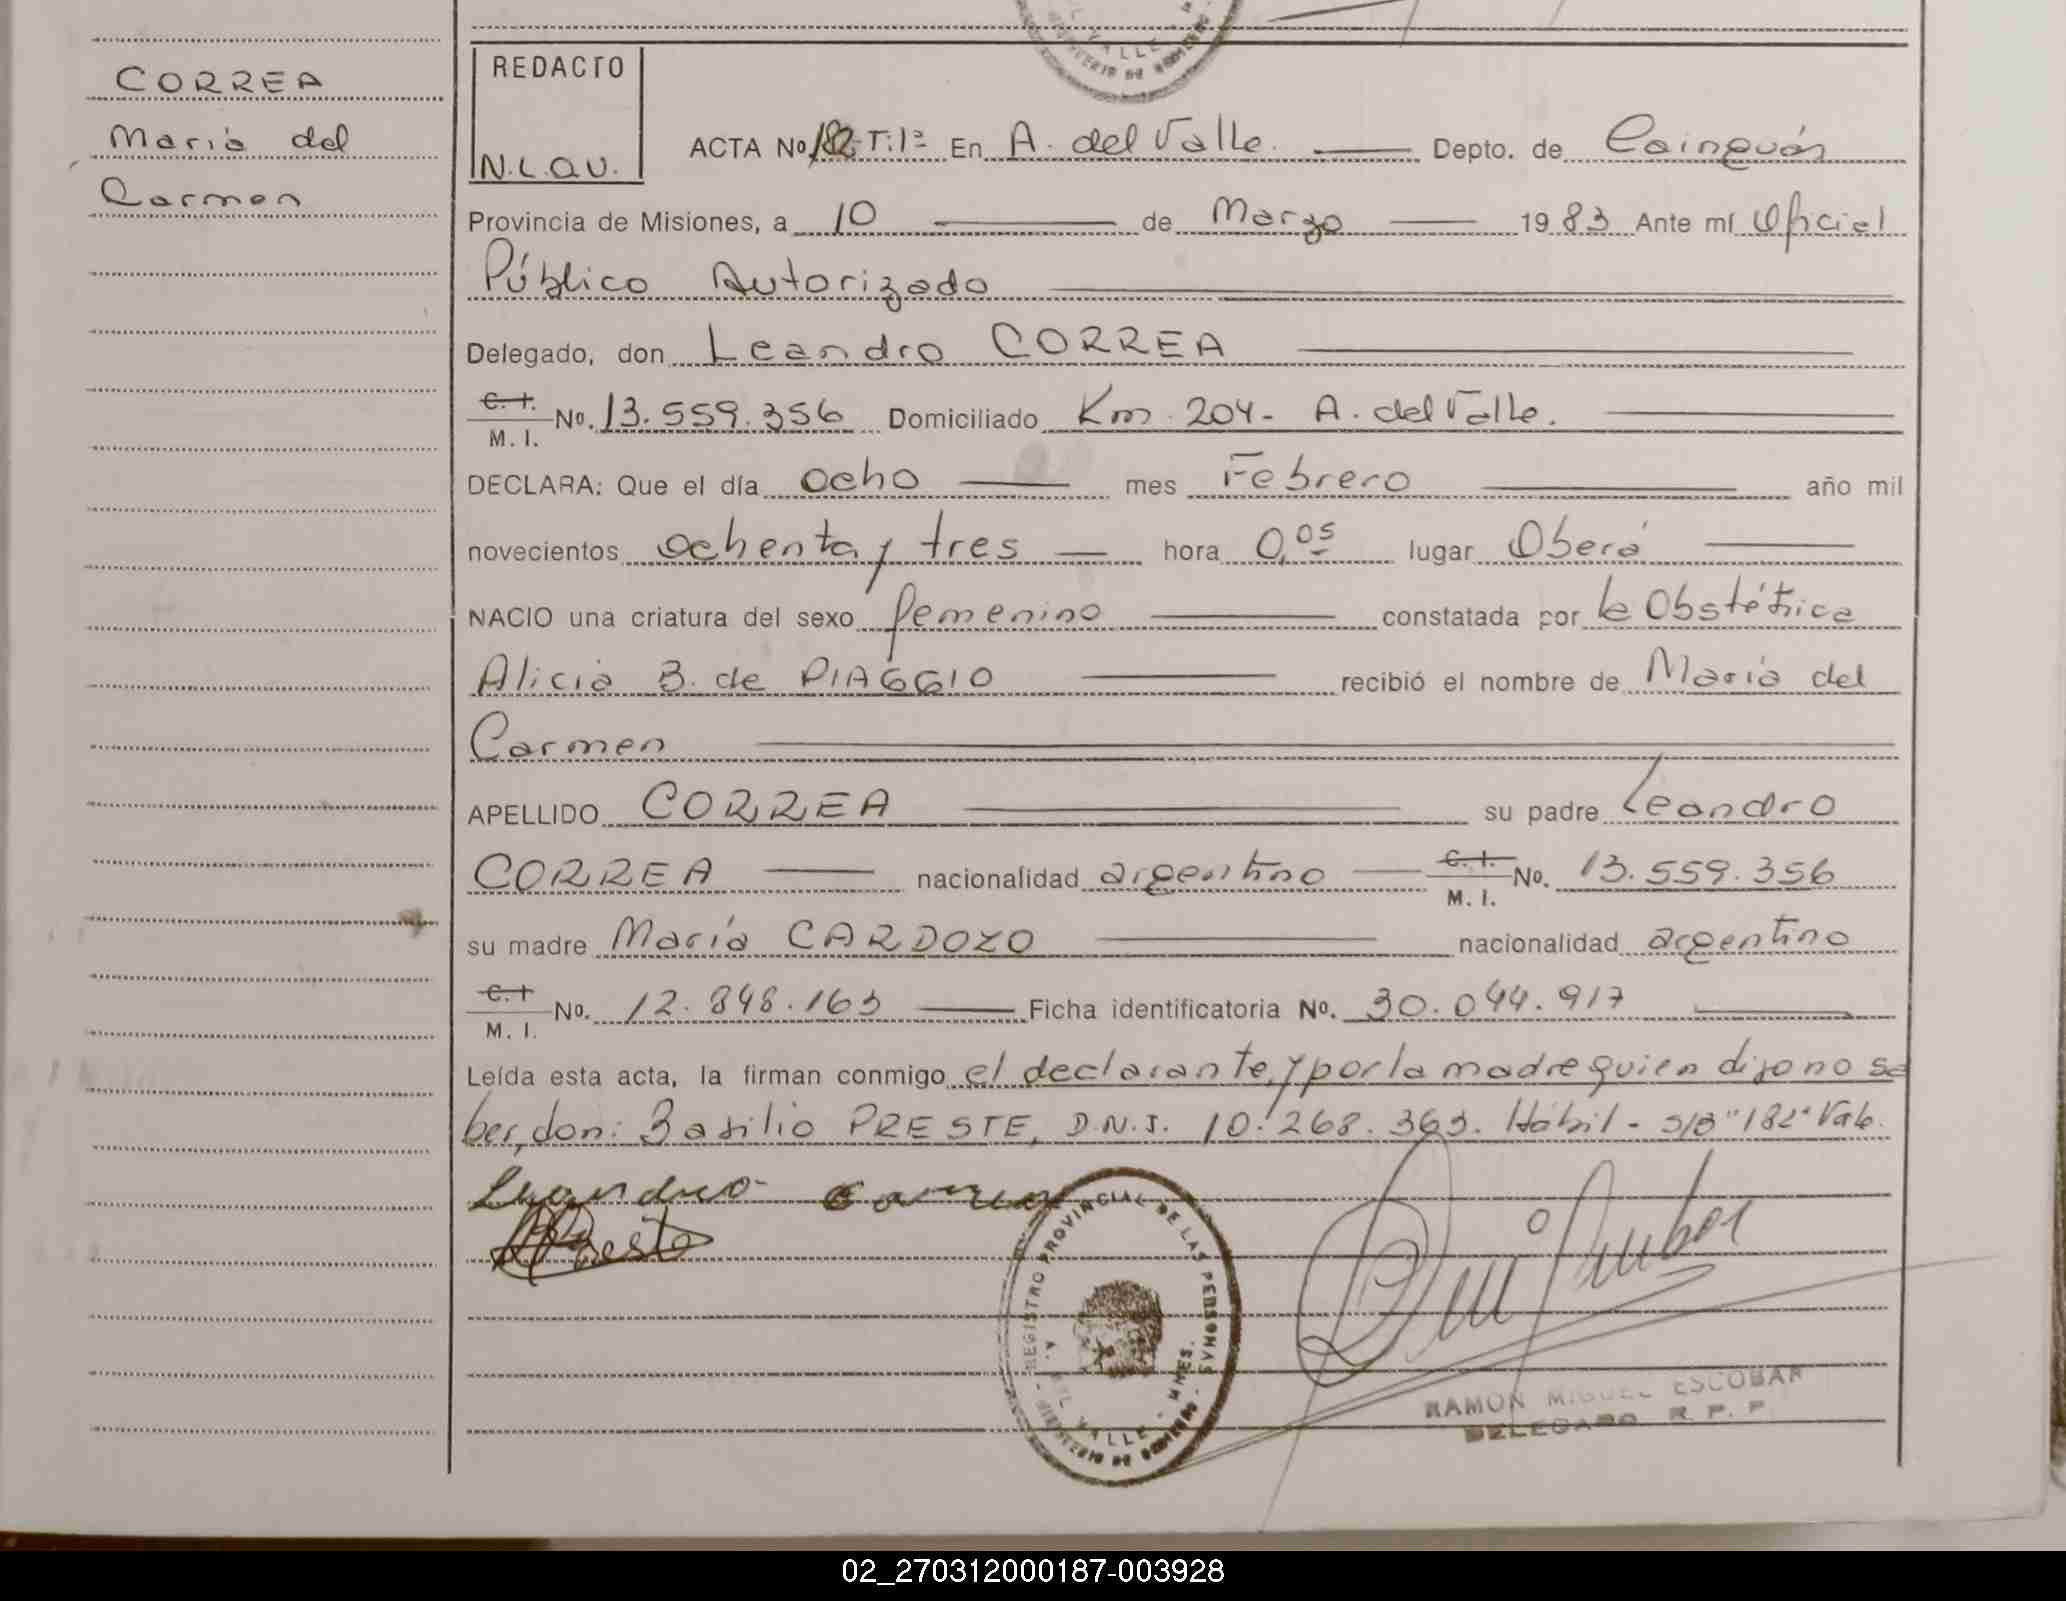 CORREA
María del
Carmen
REDACTO
N.L.O.V.
ACTA No 182 T:1º En A. del Valle. Depto. de Cainguás
Provincia de Misiones, a 10 de Marzo 1983 Ante mí Oficial
Público Autorizado
Delegado, don Leandro CORREA
C. I. M. I. No. 13.559.356 Domiciliado Km. 204- A. del Valle.
DECLARA: Que el día ocho mes Febrero año mil
novecientos ochenta y tres hora 0,05 lugar Oberá
NACIO una criatura del sexo femenino constatada por la Obstétrica
Alicia B. de PIAGGIO recibió el nombre de María del
Carmen
APELLIDO CORREA su padre Leandro
CORREA nacionalidad argentino C. I. M. I. No. 13.559.356
su madre María CARDOZO nacionalidad argentino
C. I M. I. No. 12.848.163 Ficha identificatoria No. 30.044.917
Leída esta acta, la firman conmigo el declarante, y por la madre quien dijo no sa
ber, don: Basilio PRESTE, D.N.I. 10.268.363. Hábil - S/B "182" Vale.
Leandro Correa
Preste
REGISTRO PROVINCIAL DE LAS PERSONAS
MINISTERIO DE GOBIERNO
A. DEL VALLE - MNES.
RAMON MIGUEL ESCOBAR
DELEGADO R. P. P.
02_270312000187-003928